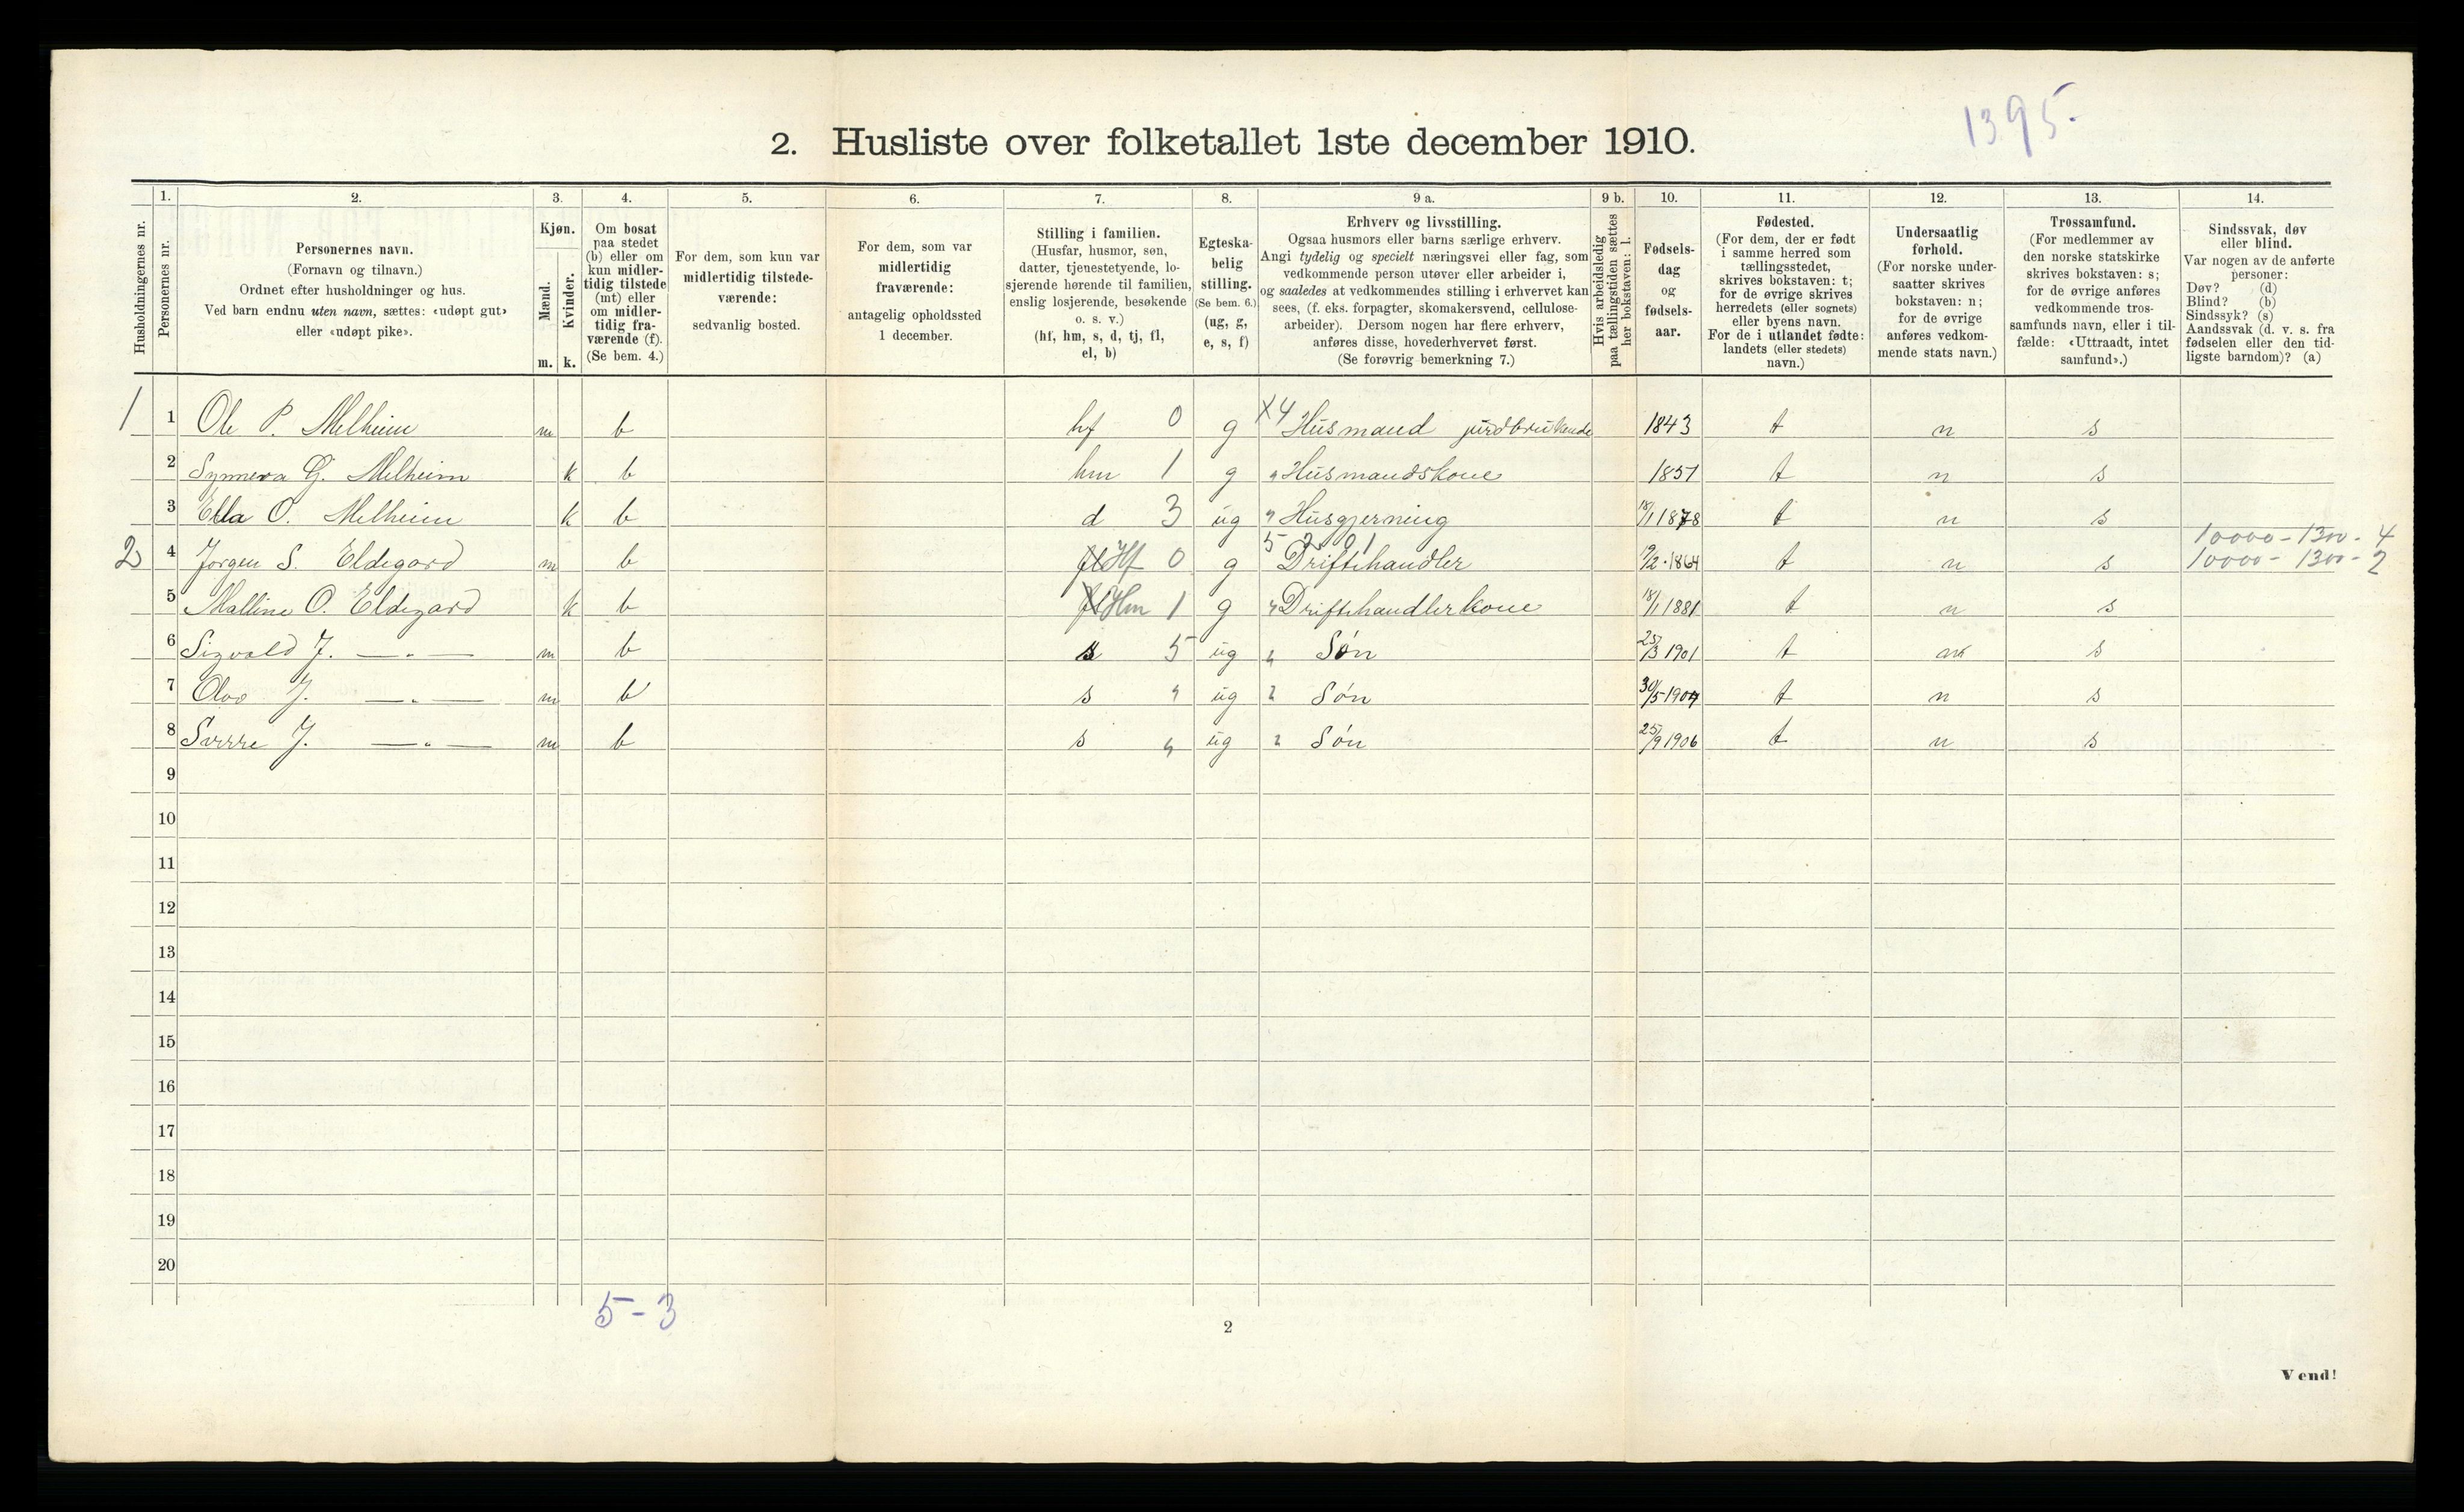 1395-
2. Husliste over folketallet 1ste december 1910.
1. 2. 3. 4. 5. 6. 7. 8. 9 a. 9 b. 10. 11. 12. 13. 14.
Husholdningernes nr.
Personernes nr.
Personernes navn.
(Fornavn og tilnavn.)
Ordnet efter husholdninger og hus.
Ved barn endnu uten navn, sættes: «udøpt gut»
eller «udøpt pike».
Kjøn.
Mænd.
Kvinder.
m. k.
Om bosat
paa stedet
(b) eller om
kun midler-
tidig tilstede
(mt) eller
om midler-
tidig fra-
værende (f).
(Se bem. 4.)
For dem, som kun var
midlertidig tilstede-
værende:
sedvanlig bosted.
For dem, som var
midlertidig
fraværende:
antagelig opholdssted
1 december.
Stilling i familien.
(Husfar, husmor, søn,
datter, tjenestetyende, lo-
sjerende hørende til familien,
enslig losjerende, besøkende
o. s. v.)
(hf, hm, s, d, tj, fl,
el, b)
Egteska-
belig
stilling.
(Se bem. 6.)
(ug, g,
e, s, f)
Erhverv og livsstilling.
Ogsaa husmors eller barns særlige erhverv.
Angi tydelig og specielt næringsvei eller fag, som
vedkommende person utøver eller arbeider i,
og saaledes at vedkommendes stilling i erhvervet kan
sees, (f. eks. forpagter, skomakersvend, cellulose-
arbeider). Dersom nogen har flere erhverv,
anføres disse, hovederhvervet først.
(Se forøvrig bemerkning 7.)
Hvis arbeidsledig
paa tællingstiden sættes
her bokstaven: l.
Fødsels-
dag
og
fødsels-
aar.
Fødested.
(For dem, der er født
i samme herred som
tællingsstedet,
skrives bokstaven: t;
for de øvrige skrives
herredets (eller sognets)
eller byens navn.
For de i utlandet fødte:
landets (eller stedets)
navn.)
Undersaatlig
forhold.
(For norske under-
saatter skrives
bokstaven: n;
for de øvrige
anføres vedkom-
mende stats navn.)
Trossamfund.
(For medlemmer av
den norske statskirke
skrives bokstaven: s;
for de øvrige anføres
vedkommende tros-
samfunds navn, eller i til-
fælde: «Uttraadt, intet
samfund».)
Sindssvak, døv
eller blind.
Var nogen av de anførte
personer:
Døv? (d)
Blind? (b)
Sindssyk? (s)
Aandssvak (d. v. s. fra
fødselen eller den tid-
ligste barndom)? (a)
1 1 Ole P. Melheim m b hf 0 g X4 Husmand jordbrukende 1843 t n s
2 Synneva G. Melheim k b hm 1 g " Husmandskone 1851 t n s
3 Ella O. Melheim k b d 3 ug " Husgjerning 18/1 1878 t n s
5 2 0 1 10000-1300-4
2 4 Jørgen S. Eldegard m b fl Hf 0 g Driftehandler 19/2 1864 t n s 10000-1300-2
5 Malline O. Eldegard k b fl Hm 1 g " Driftehandlerkone 18/1 1881 t n s
6 Sigvald J. —„— m b s 5 ug " Søn 25/3 1901 t n s
7 Olav J. —„— m b s " ug " Søn 30/5 1904 t n s
8 Sverre J. —„— m b s " ug " Søn 25/9 1906 t n s
9
10
11
12
13
14
15
16
17
18
19
20
5-3
2
Vend!